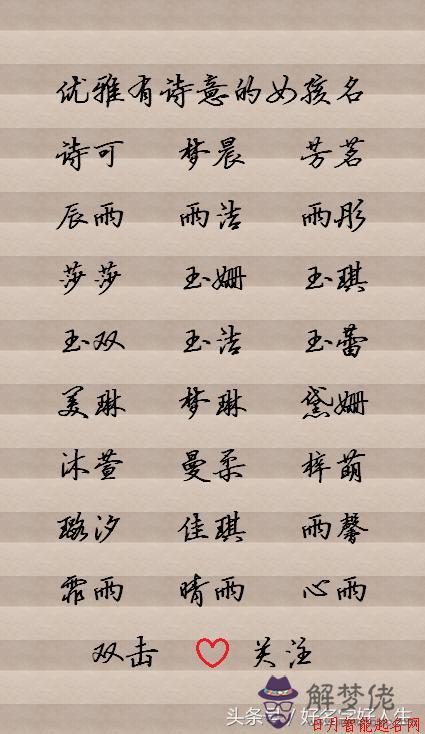 优雅有诗意的女孩名
诗可 梦晨 芳茗
辰雨 雨洁 雨彤
莎莎 玉姗 玉琪
玉双 玉洁 玉蕾
美琳 梦琳 黛姗
沐萱 曼柔 梓萌
璐汐 佳琪 雨馨
霏雨 晴雨 心雨
双击 关注
解梦佬
头条号/好名字好人生
日月智能起名网